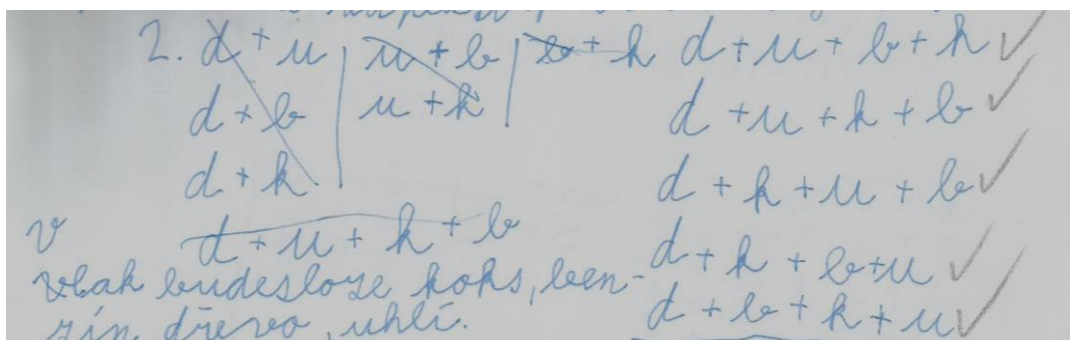 2. d + u | u + b | b + k d + u + b + k ✓
d + b | u + k | d + u + k + b ✓
d + k d + k + u + b ✓
v d + u + k + b d + k + b + u ✓
vlak budesloze koks, ben- d + b + k + u ✓
zín dřevo, uhlí.